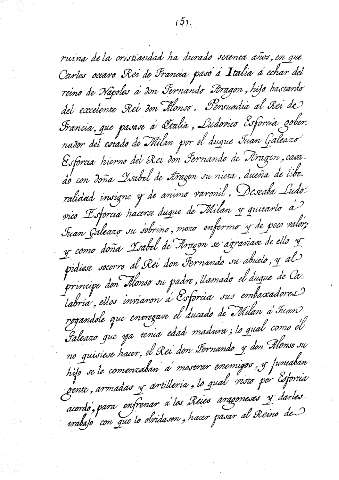 151.
ruina de la cristiandad ha durado setenta años, en que
Carlos octavo Rei de Francia pasó á Italia á echar del
reino de Nápoles á don Fernando Aragon, hijo bastardo
del excelente Rei don Alonso. Persuadia al Rei de
Francia, que pasase á Italia, Ludovico Esforcia gober-
nador del estado de Milan por el duque Juan Galeazo
Esforcia hierno del Rei don Fernando de Aragon, casa-
do con doña Isabel de Aragon su nieta, dueña de libe-
ralidad insigne y de animo varonil. Deseaba Ludo-
vico Esforcia hacerse duque de Milan y quitarlo á
Juan Galeazo su sobrino, mozo enfermo y de poco valor;
y como doña Isabel de Aragon se agraviase de ello y
pidiese socorro al Rei don Fernando su abuelo, y al
principe don Alonso su padre, llamado el duque de Ca-
labria, ellos inviaron á Esforcia sus embaxadores
rogandole que entregase el ducado de Milan á Juan
Galeazo que ya tenia edad madura; lo qual como él
no quisiese hacer, el Rei don Fernando y don Alonso su
hijo se le comenzaban á mostrar enemigos, y juntaban
gente, armadas y artilleria, lo qual visto por Esforcia
acordó, para enfrenar á los Reies aragoneses y darles
trabajo con que lo olvidasen, hacer pasar al Reino de